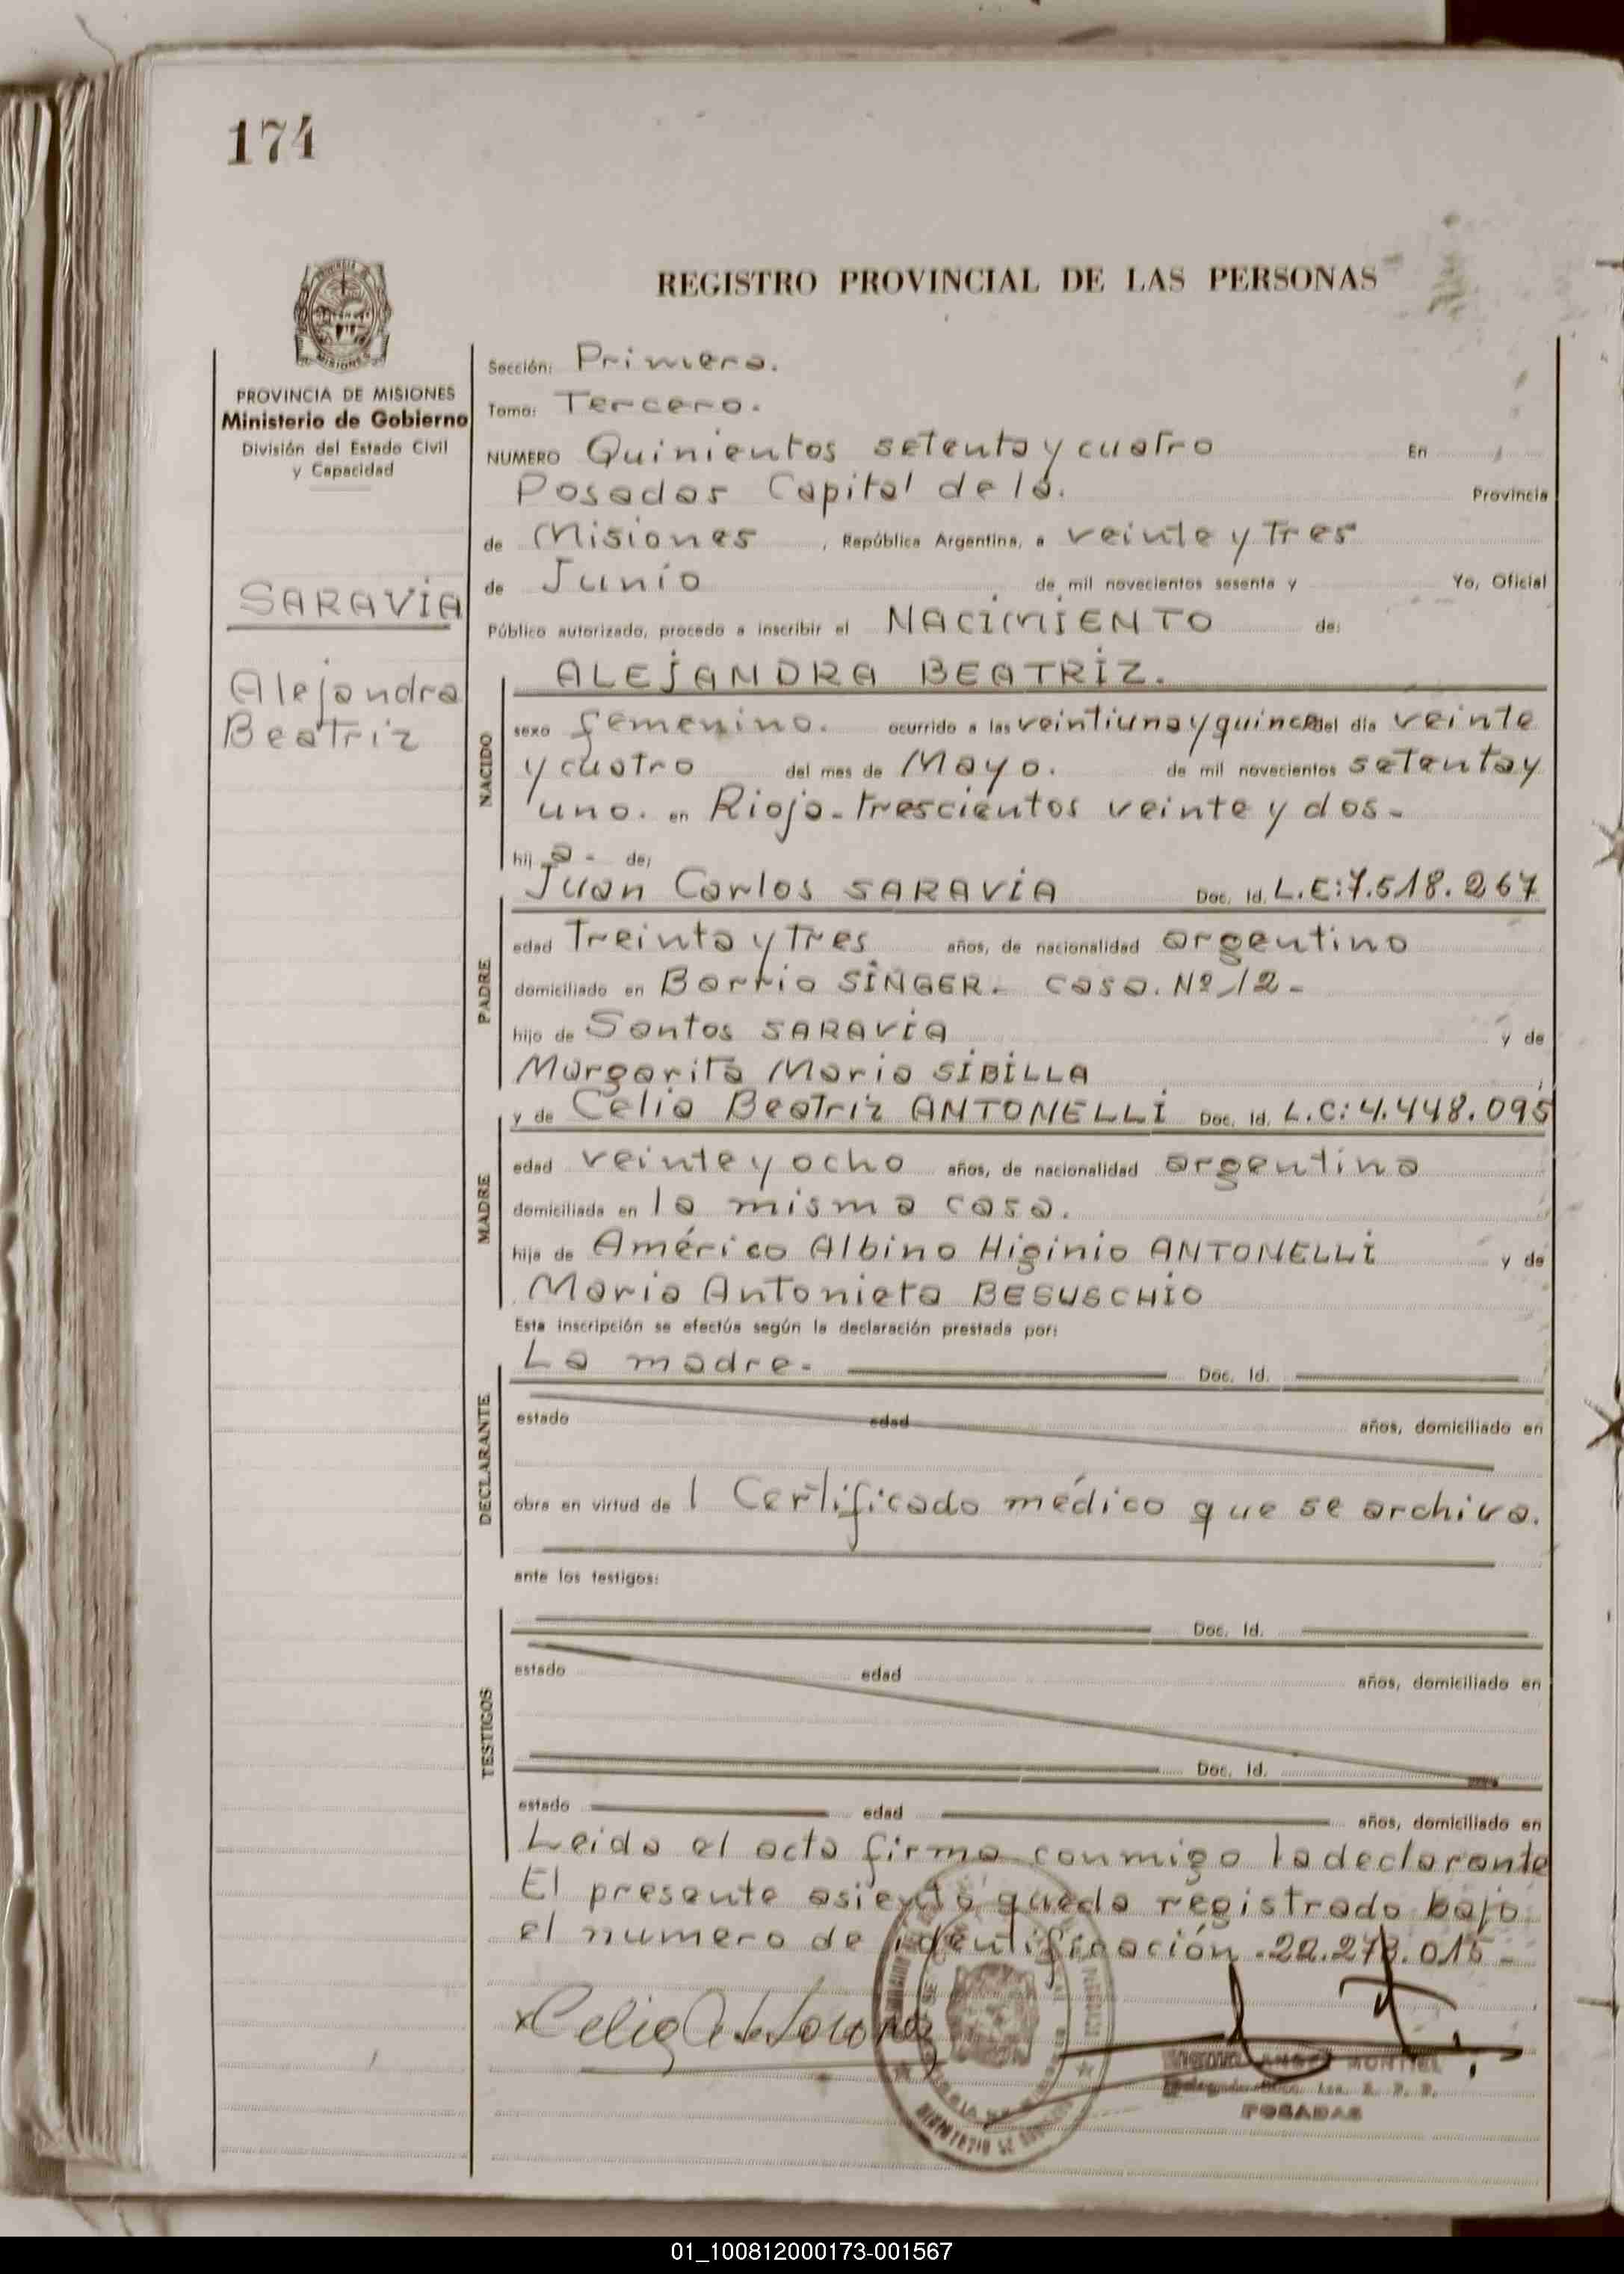 174
REGISTRO PROVINCIAL DE LAS PERSONAS
PROVINCIA DE MISIONES
Ministerio de Gobierno
División del Estado Civil
y Capacidad
SARAVIA
Alejandra
Beatriz
Sección: Primera.
Tomo: Tercero.
NUMERO Quinientos setenta y cuatro En
Posadas Capital de la. Provincia
de Misiones, República Argentina, a veinte y Tres
de Junio de mil novecientos sesenta y Yo, Oficial
Público autorizado, procedo a inscribir el NACIMIENTO de:
NACIDO
ALEJANDRA BEATRIZ.
sexo femenino. ocurrido a las veintiuna y quince del día veinte
y cuatro del mes de Mayo. de mil novecientos setenta y
uno. en Rioja-trescientos veinte y dos-
hij a- de:
PADRE
Juan Carlos SARAVIA Doc. Id. L.E:7.518.267
edad Treinta y Tres años, de nacionalidad argentino
domiciliado en Barrio SINGER. casa. Nº 12-
hijo de Santos SARAVIA y de
Margarita Maria SIBILLA
MADRE
y de Celia Beatriz ANTONELLI Doc. Id. L.C:4.448.095
edad veinte y ocho años, de nacionalidad argentina
domiciliada en la misma casa.
hija de Américo Albino Higinio ANTONELLI y de
Maria Antonieta BESUSCHIO
Esta inscripción se efectúa según la declaración prestada por:
DECLARANTE
La madre. Doc. Id.
estado edad años, domiciliado en
obra en virtud de 1 Certificado médico que se archiva.
ante los testigos:
TESTIGOS
Doc. Id.
estado edad años, domiciliado en
Doc. Id.
estado edad años, domiciliado en
Leida el acta firma conmigo la declarante
El presente asiento queda registrado bajo
el numero de identificación.22.273.015-
MONTIEL
POSADAS
01_100812000173-001567